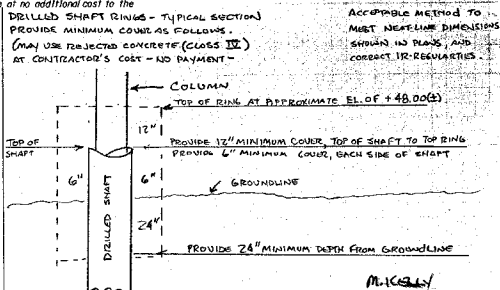 at no additional cost to the
DRILLED SHAFT RINGS - TYPICAL SECTION
PROVIDE MINIMUM COVER AS FOLLOWS.
(MAY USE REJECTED CONCRETE (CLASS IV)
AT CONTRACTOR'S COST - NO PAYMENT -
ACCEPTABLE METHOD TO
MEET NEAT-LINE DIMENSIONS
SHOWN IN PLANS, AND
CORRECT IR-REGULARTIES.
COLUMN
TOP OF RING AT APPROXIMATE EL. OF +48.00(±)
12"
TOP OF
SHAFT
PROVIDE 12" MINIMUM COVER, TOP OF SHAFT TO TOP RING
PROVIDE 6" MINIMUM COVER, EACH SIDE OF SHAFT
6"
6"
GROUNDLINE
DRILLED SHAFT
24"
PROVIDE 24" MINIMUM DEPTH FROM GROUNDLINE
M. KELLY